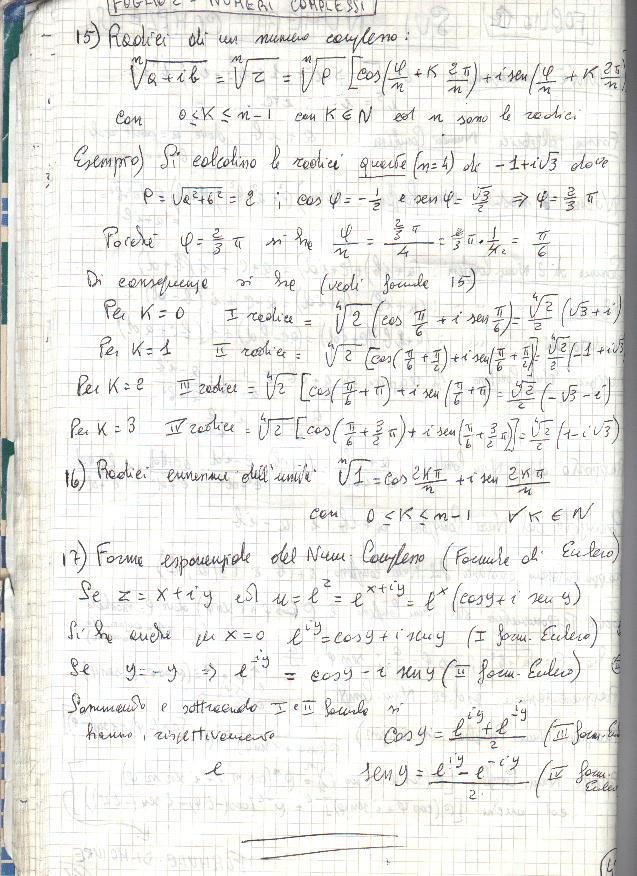 FOGLIO 2 - NUMERI COMPLESSI
15) Radici di un numero complesso:
ⁿ√(a+ib) = ⁿ√z = ⁿ√ρ [cos(φ/n + K 2π/n) + i sen(φ/n + K 2π/n
con 0≤K≤n-1 con K∈N ed n sono le radici
Esempio) Si calcolino le radici quarte (n=4) di -1+i√3 dove
ρ = √(a²+b²) = 2 ; cos φ = -1/2 e sen φ = √3/2 ⇒ φ = 2/3 π
Poiché φ = 2/3 π si ha φ/n = (2/3 π)/4 = 2/3 π · 1/4₂ = π/6
Di conseguenza si ha (vedi formula 15)
Per K=0 I radice = ⁴√2 (cos π/6 + i sen π/6) = ⁴√2/2 (√3+i)
Per K=1 II radice = ⁴√2 [cos(π/6 + π/2) + i sen(π/6 + π/2)] = ⁴√2/2 (-1+i√3
Per K=2 III radice = ⁴√2 [cos(π/6 + π) + i sen(π/6 + π) = ⁴√2/2 (-√3 - i)
Per K=3 IV radice = ⁴√2 [cos(π/6 + 3/2 π) + i sen(π/6 + 3/2 π)] = ⁴√2/2 (1-i√3)
16) Radici ennesime dell'unità ⁿ√1 = cos 2Kπ/n + i sen 2Kπ/n
con 0≤K≤n-1 ∀K∈N
17) Forma esponenziale del Num. Complesso (Formule di Eulero)
Se z = x+iy ed u = e^z = e^(x+iy) = e^x (cosy + i seny)
Si ha anche per x=0 e^(iy) = cosy + i seny (I form. Eulero)
Se y=-y ⇒ e^(iy) = cosy - i seny (II form. Eulero)
Sommando e sottraendo I e II formula si
hanno, rispettivamente cosy = (e^(iy) + e^(-iy))/2 (III form. Eu
e seny = (e^(iy) - e^(-iy))/2 (IV form. Eule